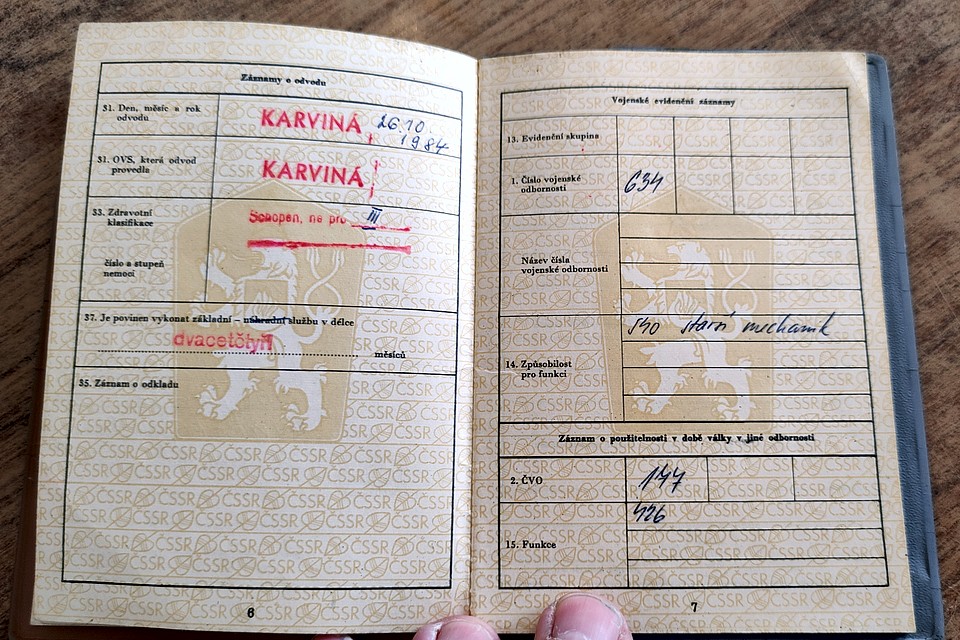 Záznamy o odvodu
31. Den, měsíc a rok
odvodu
KARVINÁ 26.10.
1984
31. OVS, která odvod
provedla
KARVINÁ
33. Zdravotní
klasifikace
Schopen, ne pro III
číslo a stupeň
nemoci
37. Je povinen vykonat základní – náhradní službu v délce
dvacetčtyři
měsíců
35. Záznam o odkladu
6
Vojenské evidenční záznamy
13. Evidenční skupina
1. Číslo vojenské
odbornosti
634
Název čísla
vojenské odbornosti
540 starší mechanik
14. Způsobilost
pro funkci
Záznam o použitelnosti v době války v jiné odbornosti
2. ČVO
147
426
15. Funkce
7